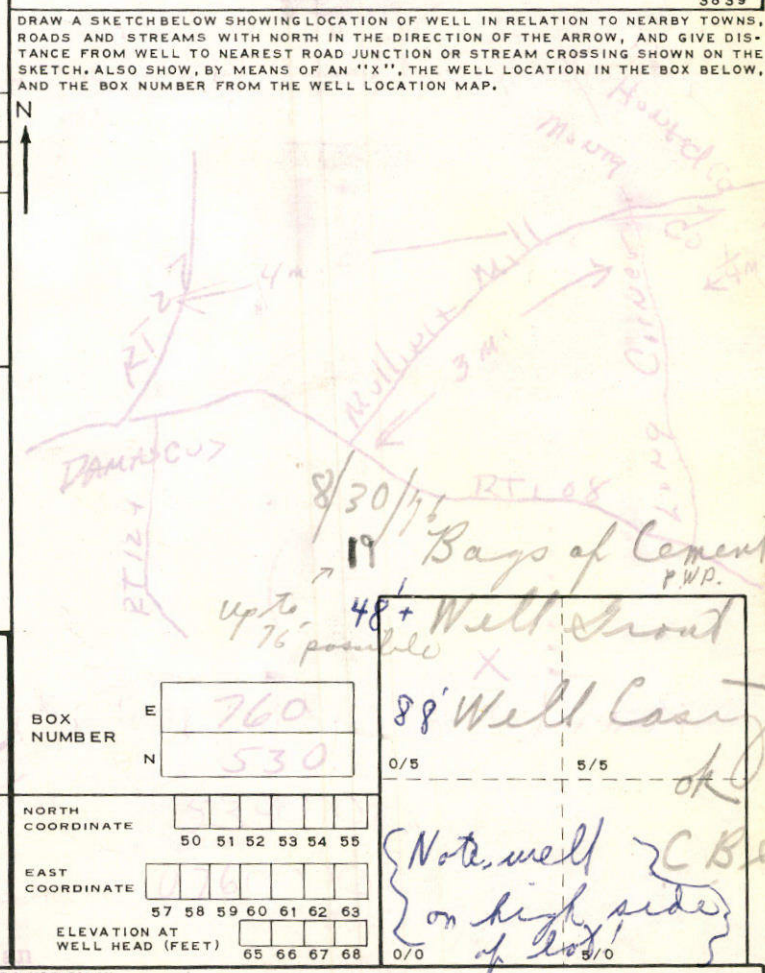 3839
DRAW A SKETCH BELOW SHOWING LOCATION OF WELL IN RELATION TO NEARBY TOWNS,
ROADS AND STREAMS WITH NORTH IN THE DIRECTION OF THE ARROW, AND GIVE DIS-
TANCE FROM WELL TO NEAREST ROAD JUNCTION OR STREAM CROSSING SHOWN ON THE
SKETCH. ALSO SHOW, BY MEANS OF AN "X", THE WELL LOCATION IN THE BOX BELOW,
AND THE BOX NUMBER FROM THE WELL LOCATION MAP.
N
Howard Co
Co
RT 27
4 m
Mill
3 m.
Long Corner
1/4 m
DAMASCUS
RT 124
RT 108
8/30/76
19 Bags of Cement
P.W.D.
up to
76 possible
48'+ Well Grout
X
88' Well Casing
ok
BOX
NUMBER
E 760
N 530
0/5 5/5
NORTH
COORDINATE
50 51 52 53 54 55
EAST
COORDINATE
57 58 59 60 61 62 63
ELEVATION AT
WELL HEAD (FEET)
65 66 67 68
{Note, well}
on high side
of lot
0/0 5/0